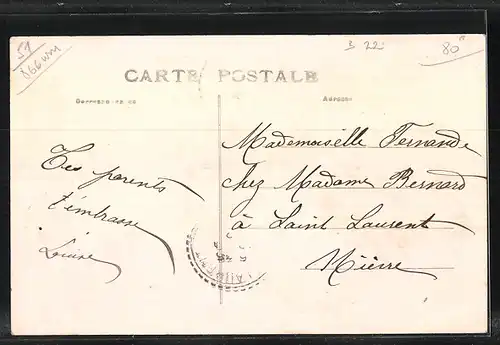 51
B 22
80
CARTE POSTALE
Correspondance
Adresse
Tes parents
t'embrasse
Louise
Mademoiselle Fernande
chez Madame Bernard
à Saint Laurent
Nièvre